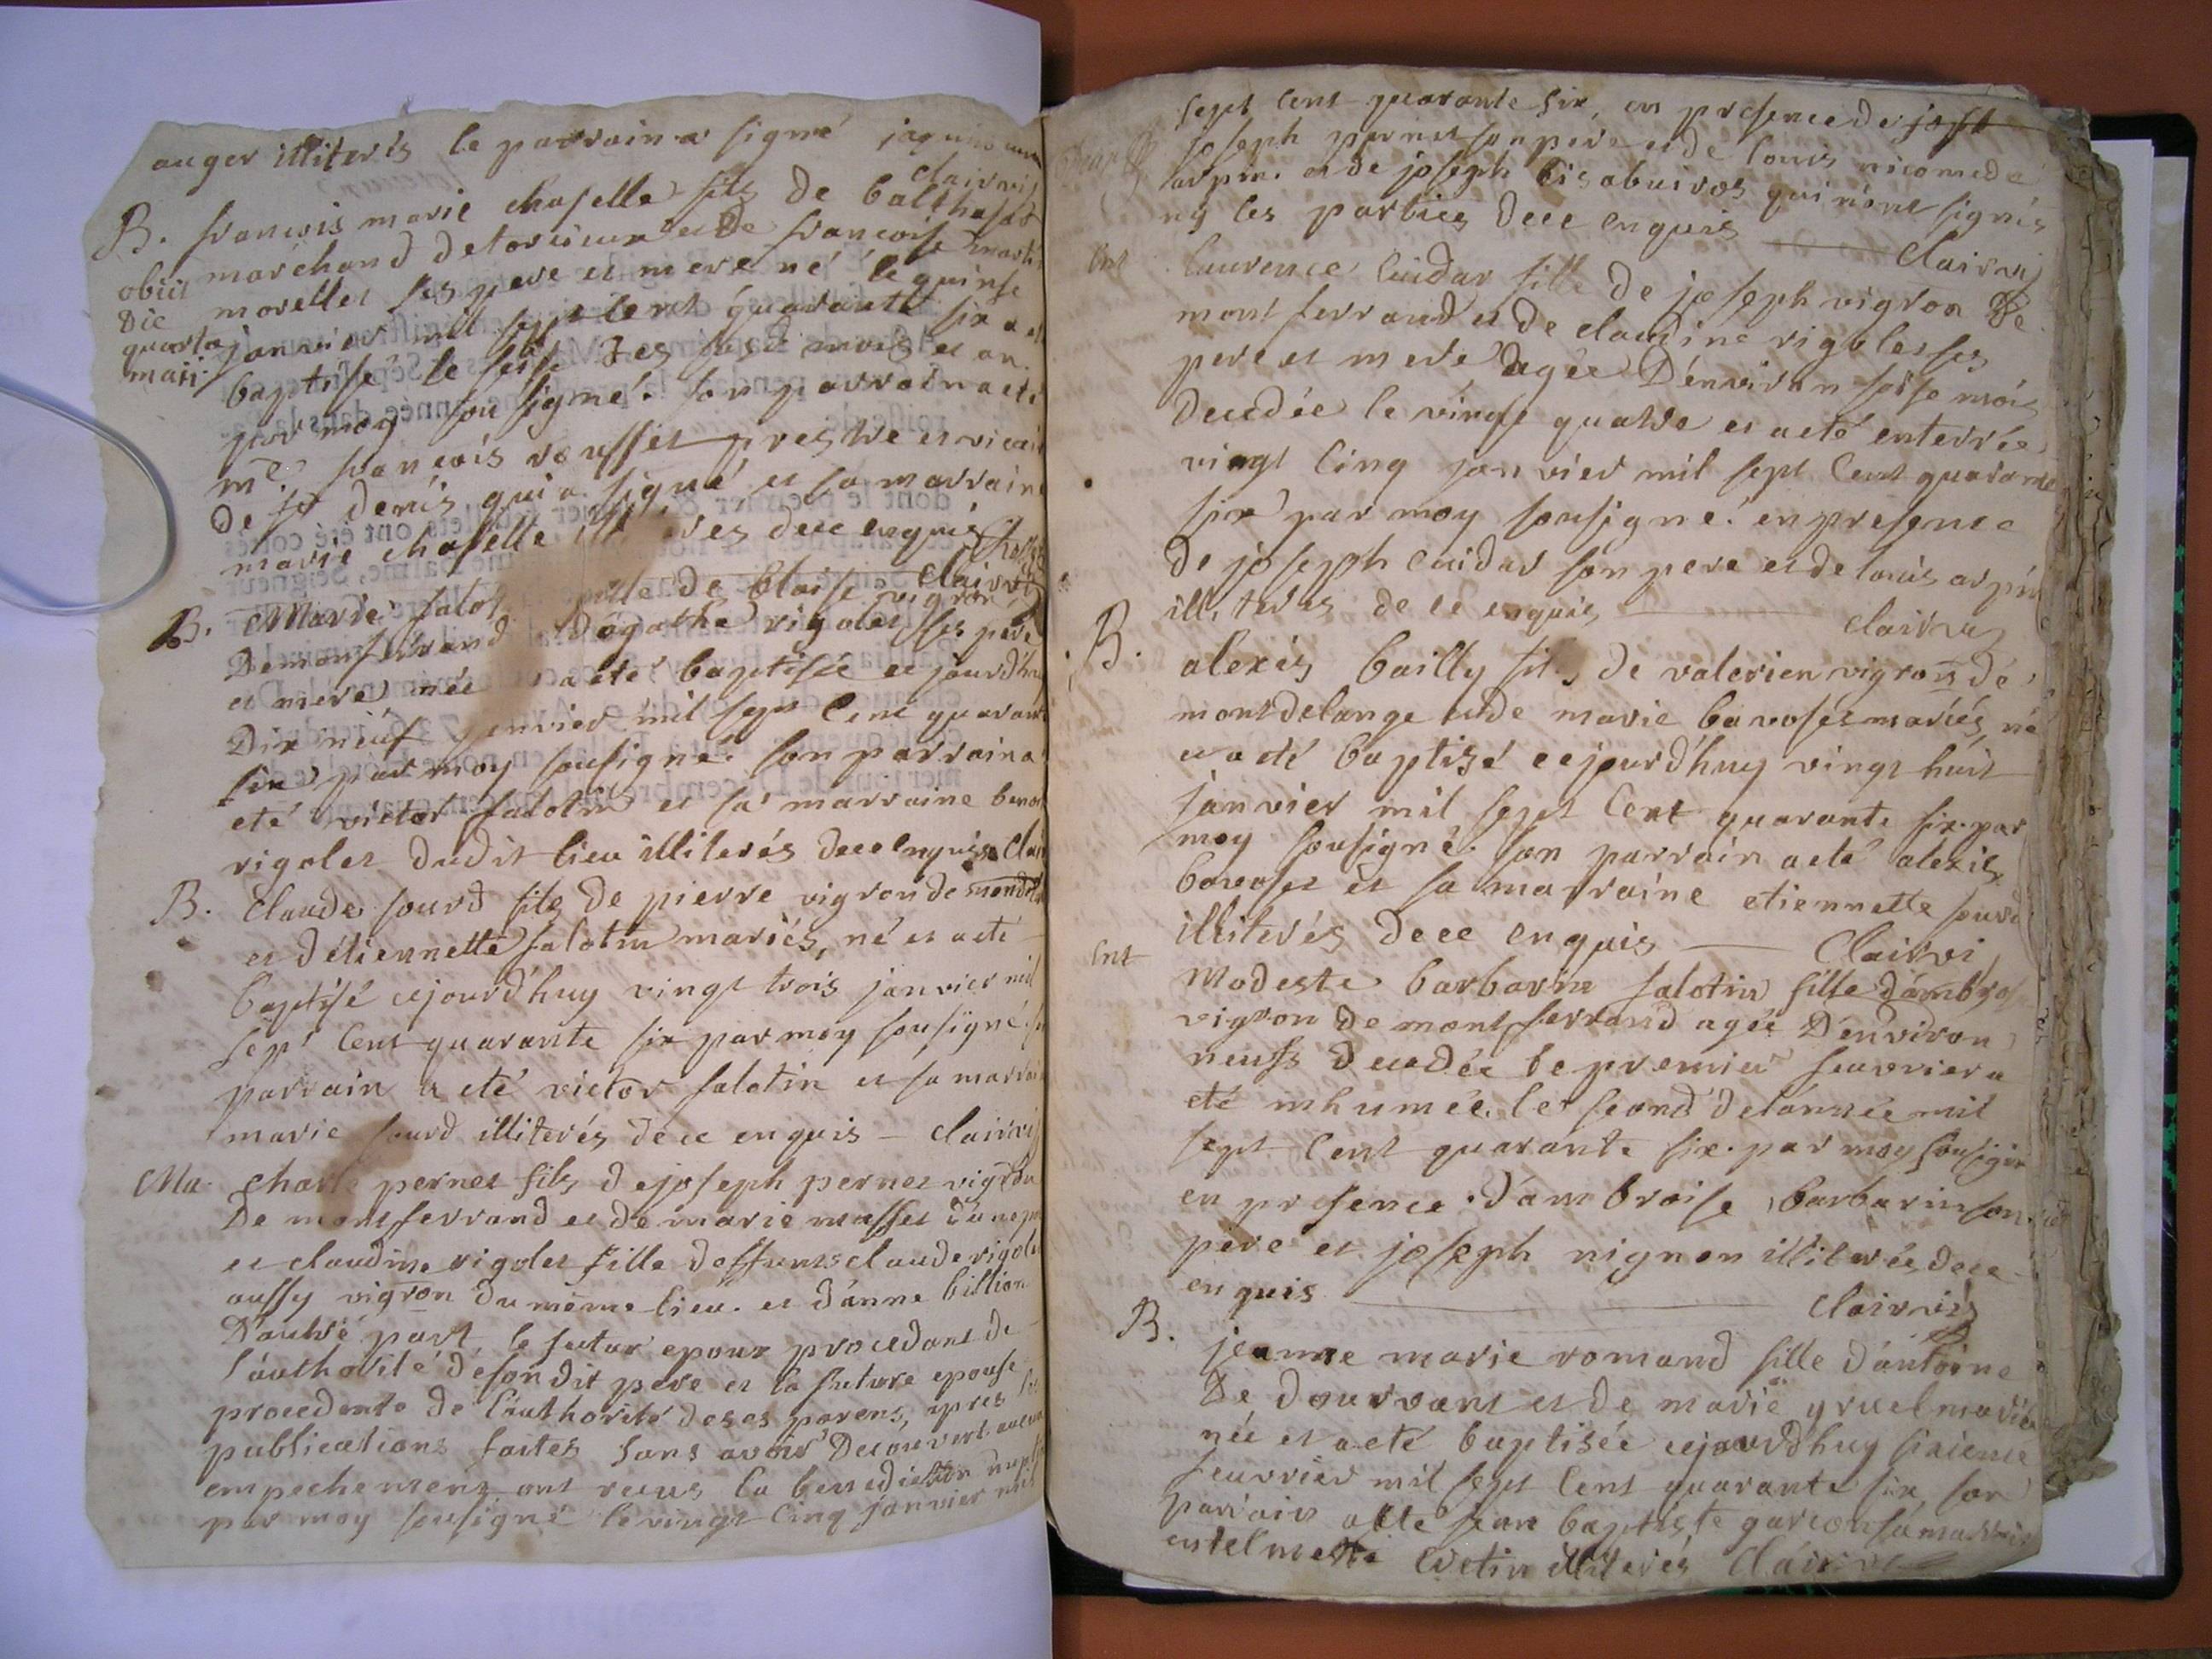 auger illiterés le parrain a signé
clairvi
B. francois marie chapelle fils de balthasar
marchand de torcieux et de francoise
obiit morellet ses pere et mere né le quinse
die quarta janvier mil sept cent quarante six a
maii baptisé le seise des susd mois et an
par moy sousigné. son parrain a eté
me. francois rousset prestre et vicai
de st denis qui a signé et sa marraine
marie chapelle de ce enquis
clairvi
B. Marie falot de blaise vigron
de montferrand d'agathe rigolet ses pere
et mere née a eté baptisée ce jourd'huy
dix neuf janvier mil sept cent quarante
six par moy sousigné. son parrain a
eté victor falotin et sa marraine
rigolet dudit lieu illiterés de ce enquis clai
B. Claude sourd fils de pierre vigron de
et d'étiennette falotin mariés, né et a eté
baptisé cejourd'huy vingt trois janvier mil
sept cent quarante six par moy sousigné. s
parrain a eté victor falotin et sa marrai
marie sourd illiterés de ce enquis — clairvi
Ma. Charle pernet fils de joseph pernet vigron
de montferrand et de marie musset d'une par
et claudine rigolet fille deffunts claude rigolet
aussy vigron du même lieu. et d'anne billion
d'autre part, le futur epoux procedant de
l'authorité de sondit pere et la future epouse
procedante de l'authorité de ses parens, apres
publications faites sans avoir decouvert aucun
empechement ont recus la benediction nupt
par moy sousigné le vingt cinq janvier mil
sept cent quarante six, en presence de
joseph pernet son pere et de louis nicomede
arpin. et de joseph qui n'ont signés
ny les parties de ce enquis — clairvi
Ent laurence cuidar fille de joseph vigron de
montferrand et de claudine rigolet ses
pere et mere agée d'environ seise mois
decedée le vingt quatre et a eté enterrée
vingt cinq janvier mil sept cent quarante
six par moy sousigné. en presence
de joseph cuidar son pere et de louis arpin
illiterés de ce enquis — clairvi
B. alexis bailly fils de valerien vigron de
montdelange et de marie bavoset mariés, né
et a eté baptizé cejourd'huy vingt huit
janvier mil sept cent quarante six par
moy sousigné. son parrain a eté alexis
bavoset et sa marraine etiennette sourd
illiterés de ce enquis — Clairvi
Ent Modeste barbarin falotin fille d'ambroi
vigron de montferrand agée d'environ
neufs decedée le premier feuvrier a
eté inhumée le second de l'année mil
sept cent quarante six. par moy sousigné
en presence d'ambroise barbarin son
pere et joseph nignon illiterés de ce
enquis — clairvi
B. jeanne marie romand fille d'antoine
de dourvant et de marie gruel mariés
née et a eté baptisée cejourd'huy sixieme
feuvrier mil sept cent quarante six, son
parrain a eté jean baptiste garcon sa marraine
illiterés Clairvi